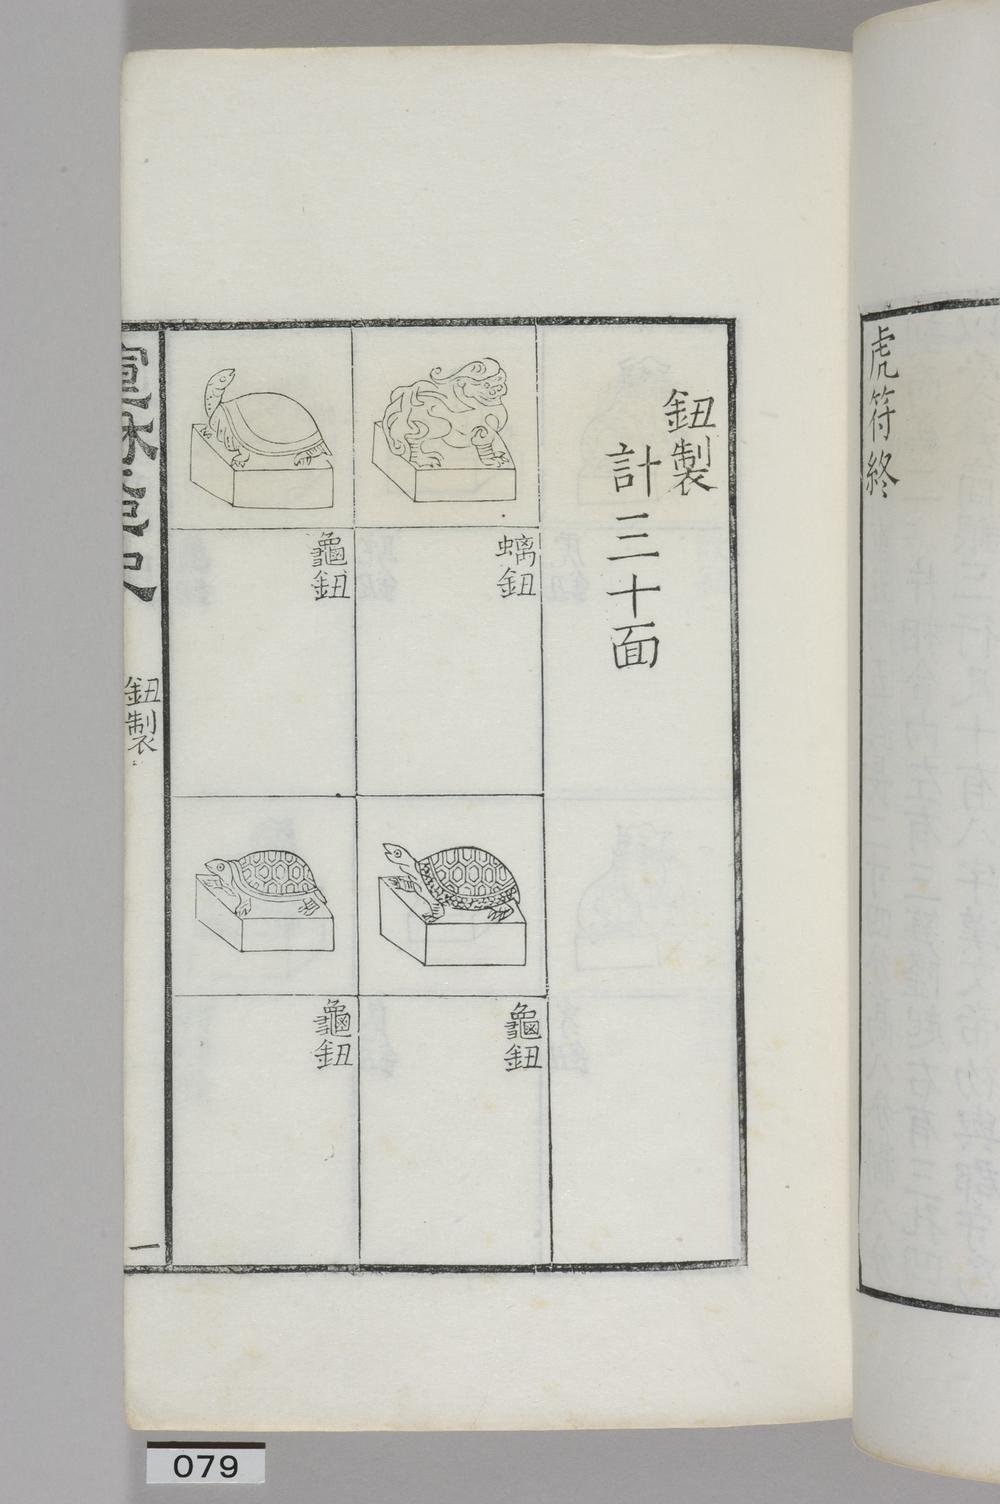 虎符終
鈕製
計三十面
螭鈕
龜鈕
龜鈕
龜鈕
鈕製
一
079